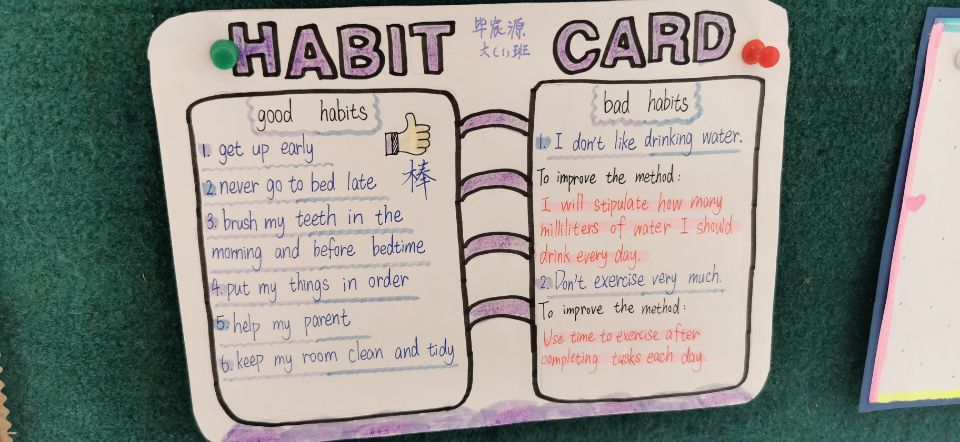 HABIT CARD
毕宸源
六(1)班
good habits
1. get up early
2. never go to bed late
3. brush my teeth in the
morning and before bedtime
4. put my things in order
5. help my parent
6. keep my room clean and tidy
棒
bad habits
1. I don't like drinking water.
To improve the method:
I will stipulate how many
milliliters of water I should
drink every day.
2. Don't exercise very much.
To improve the method:
Use time to exercise after
completing tasks each day.